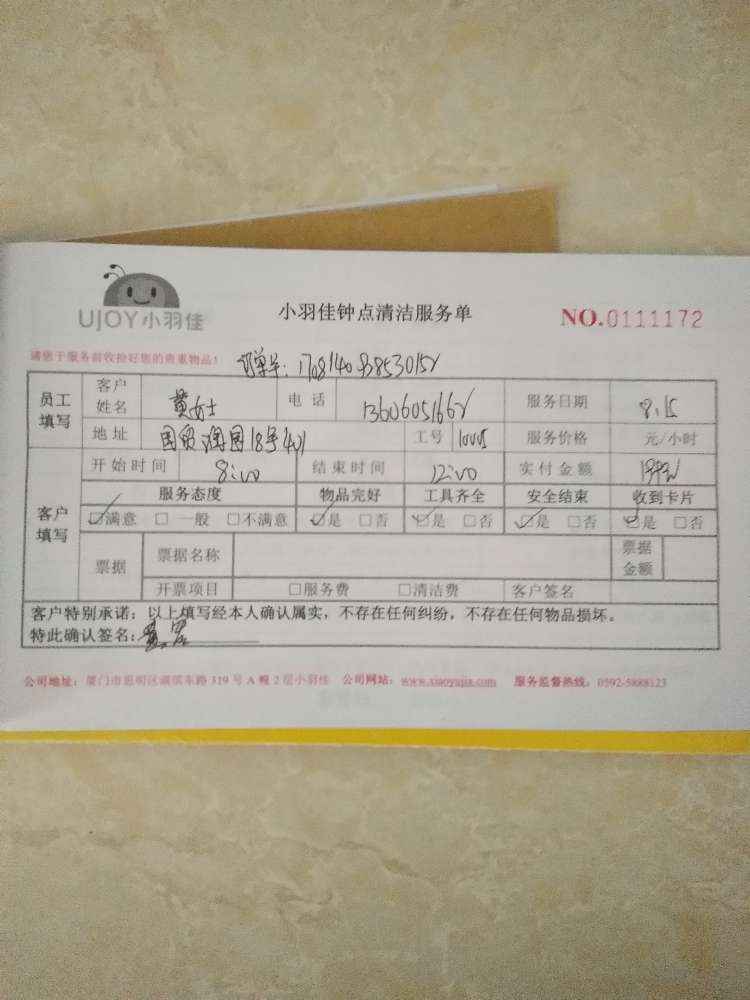 UJOY小羽佳
小羽佳钟点清洁服务单
NO.0111172
请您于服务前收拾好您的贵重物品!
员工填写 客户姓名 黄女士 电话 服务日期 8.15
地址 国贸 18号401 工号 服务价格 元/小时
客户填写 开始时间 8:00 结束时间 12:00 实付金额
服务态度 物品完好 工具齐全 安全结束 收到卡片
☑满意 □一般 □不满意 ☑是 □否 ☑是 □否 ☑是 □否 ☑是 □否
票据 票据名称 票据金额
开票项目 □服务费 □清洁费 客户签名
客户特别承诺:以上填写经本人确认属实,不存在任何纠纷,不存在任何物品损坏。
特此确认签名:
公司地址:厦门市思明区湖滨东路 319 号 A 幢 2 层小羽佳 公司网站:www.xiaoyujia.com 服务监督热线:0592-5888123